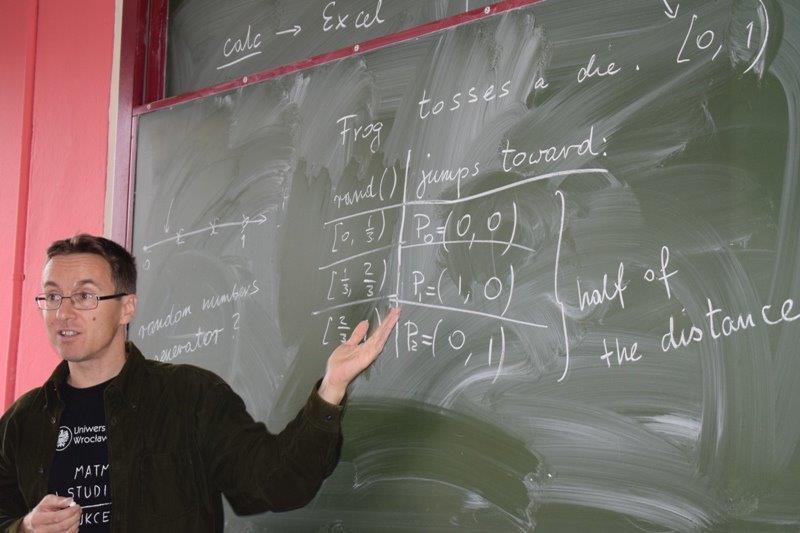 calc → Excel
[0, 1)
Frog tosses a die.
rand() jumps toward:
[0, 1/3) P₀=(0, 0)
[1/3, 2/3) P₁=(1, 0)
[2/3 P₂=(0, 1)
half of
the distance
0 1
random numbers
generator ?
Uniwers
Wrocław
MATM
STUDI
UKCE